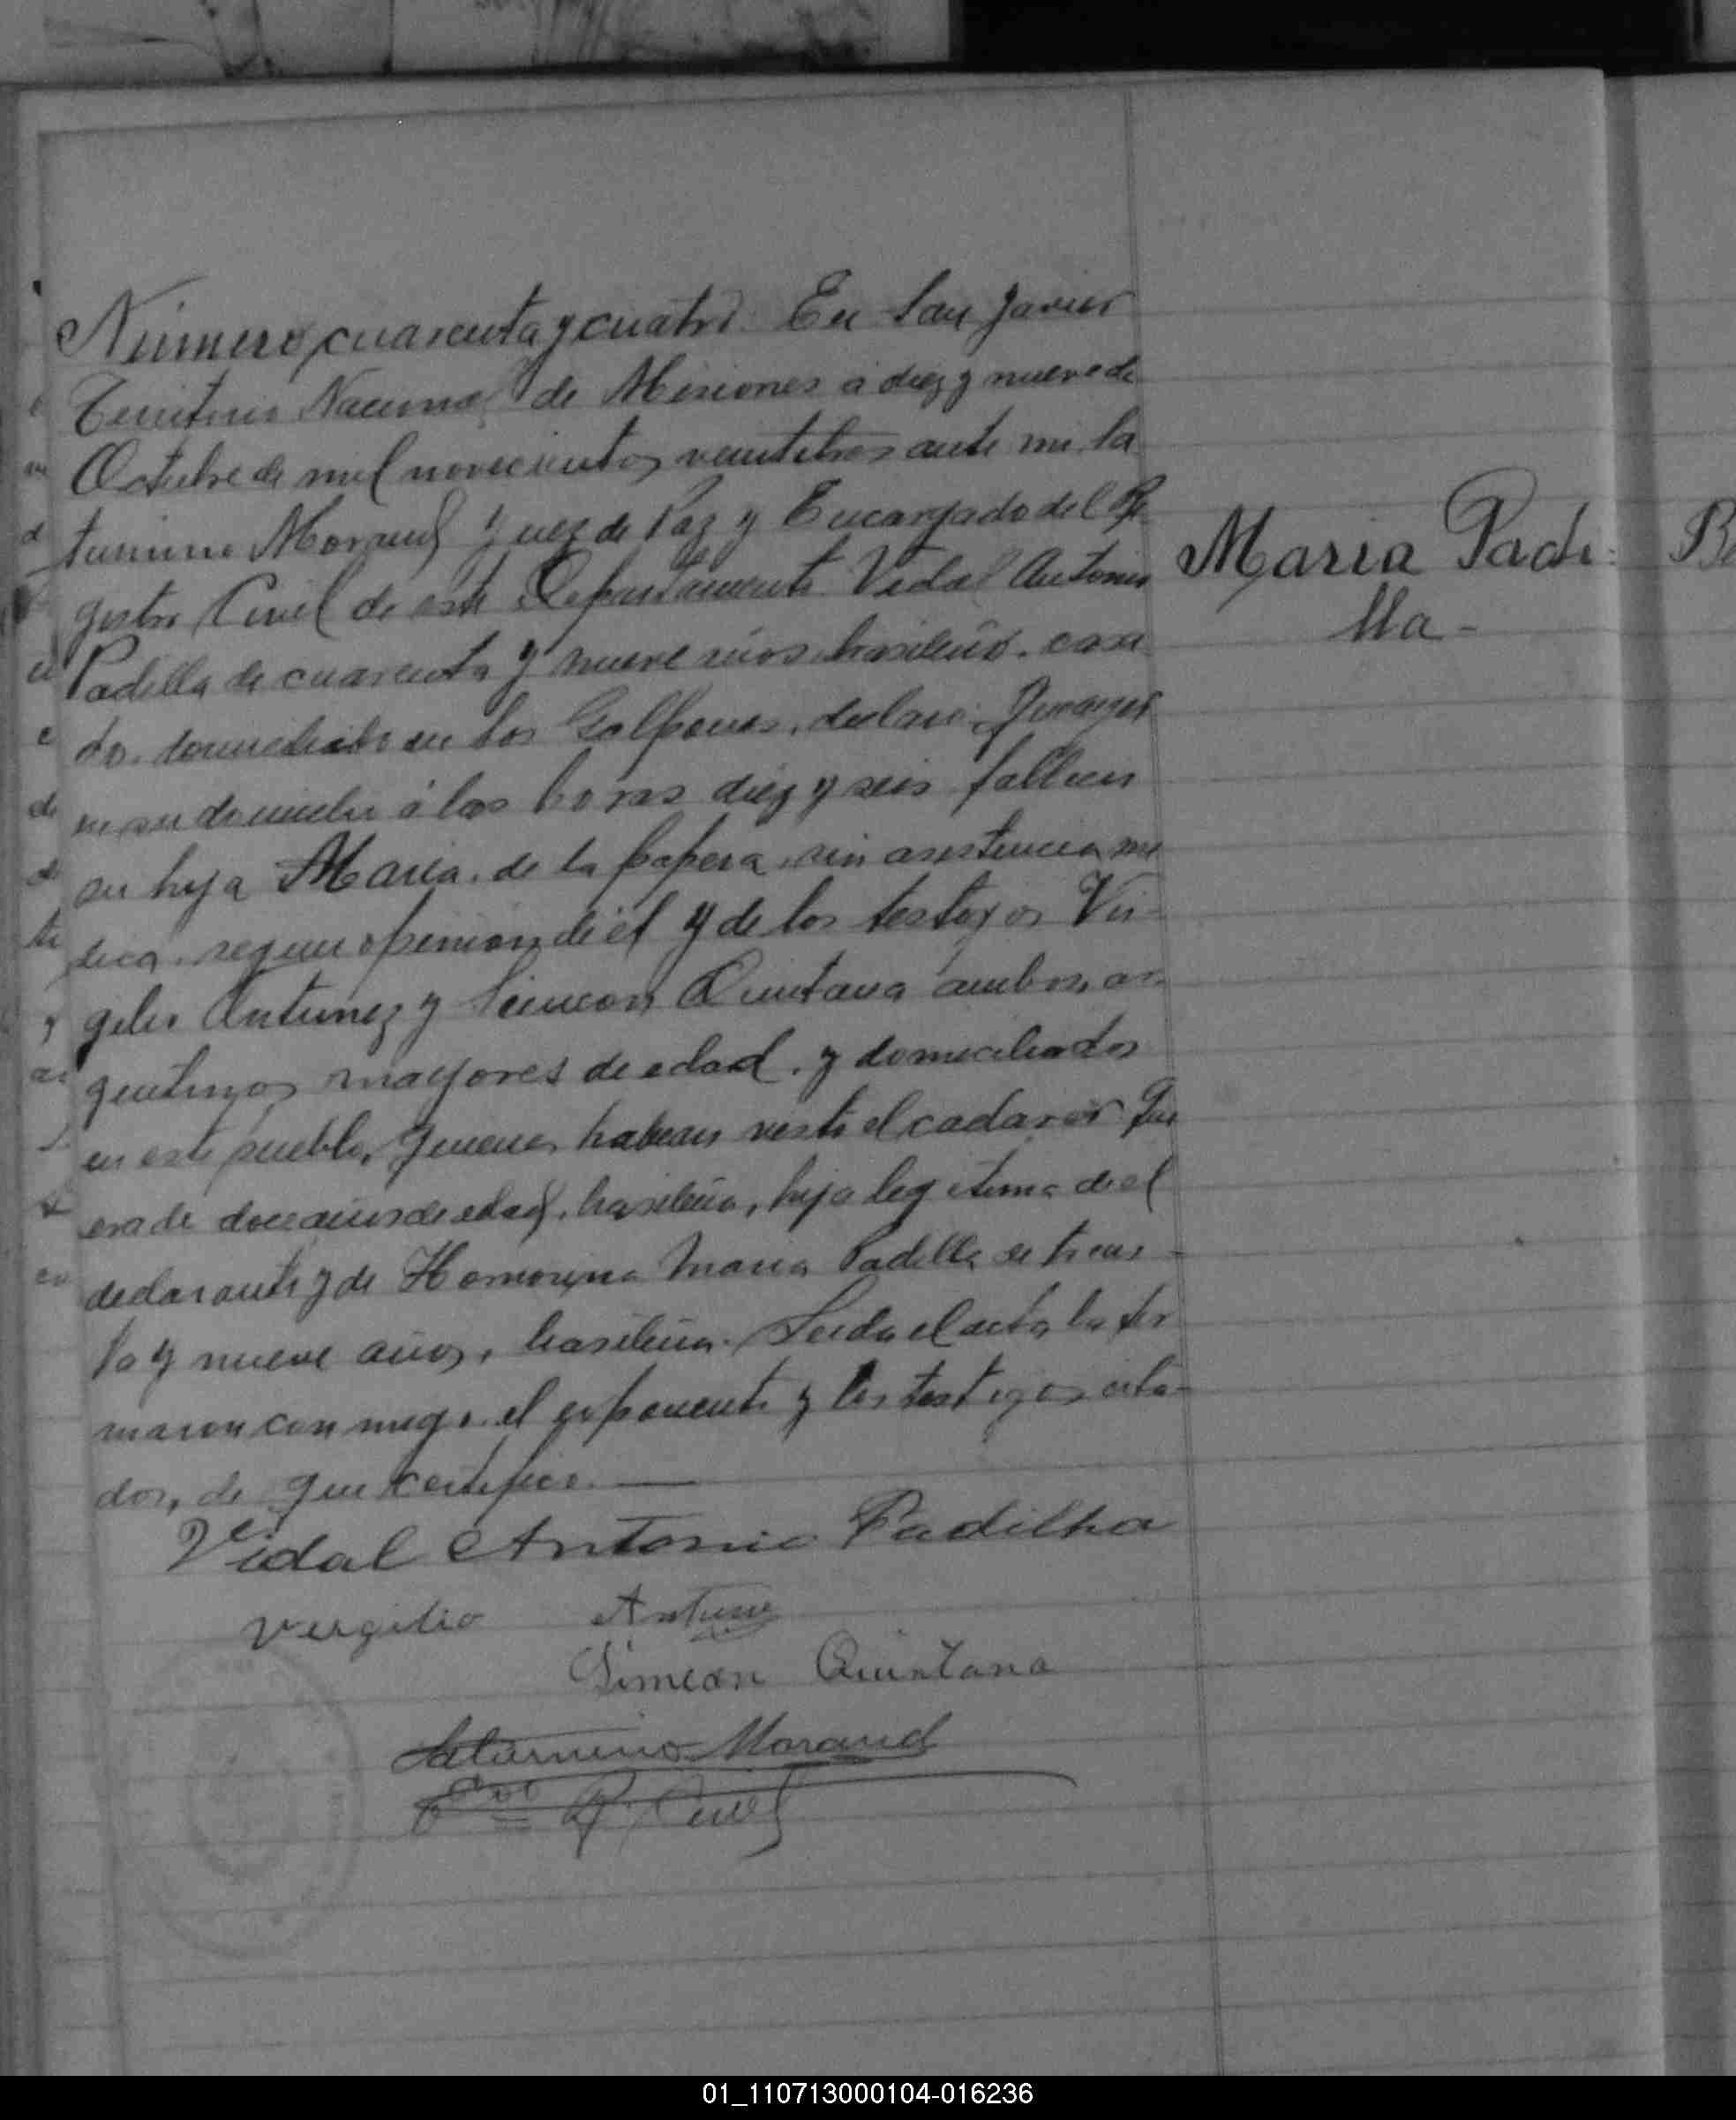 Número cuarenta y cuatro. En San Javier
Territorio Nacional de Misiones a diez y nueve de
Octubre de mil novecientos veintitres ante mi Sa
turnino Moraud Juez de Paz y Encargado del Re
gistro Civil de este Departamento Vidal Antonio
Padilla de cuarenta y nueve años brasileño. casa
do. domiciliado en los Galpones, declaró: Que ayer
en su domicilio á las horas diez y seis falleció
su hija María. de la papera sin asistencia me
dica. segun opinion de él y de los testigos Vir-
gilio Antunez y Simeon Quintana ambos, ar-
gentinos mayores de edad. y domiciliados
en este pueblo, quienes habian visto el cadaver Que
era de doce años de edad, brasileña, hija legitima del
declarante y de Maria Padilla de trein-
ta y nueve años, brasileña. Leida el acta la fir
maron conmigo. el exponente y los testigos cita-
dos, de que certifico.—
Vidal Antonio Padilha
Vergilio Antune
Simeon Quintana
Saturnino Moraud
R. Civil
Maria Padi-
lla-
01_110713000104-016236